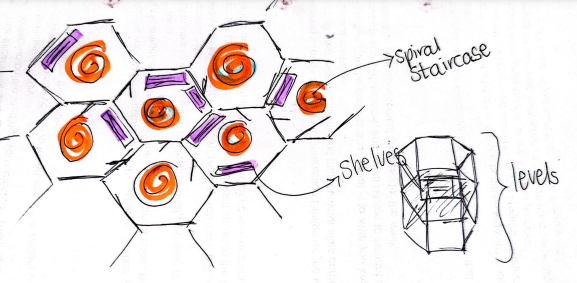 spiral
staircase
Shelves
levels